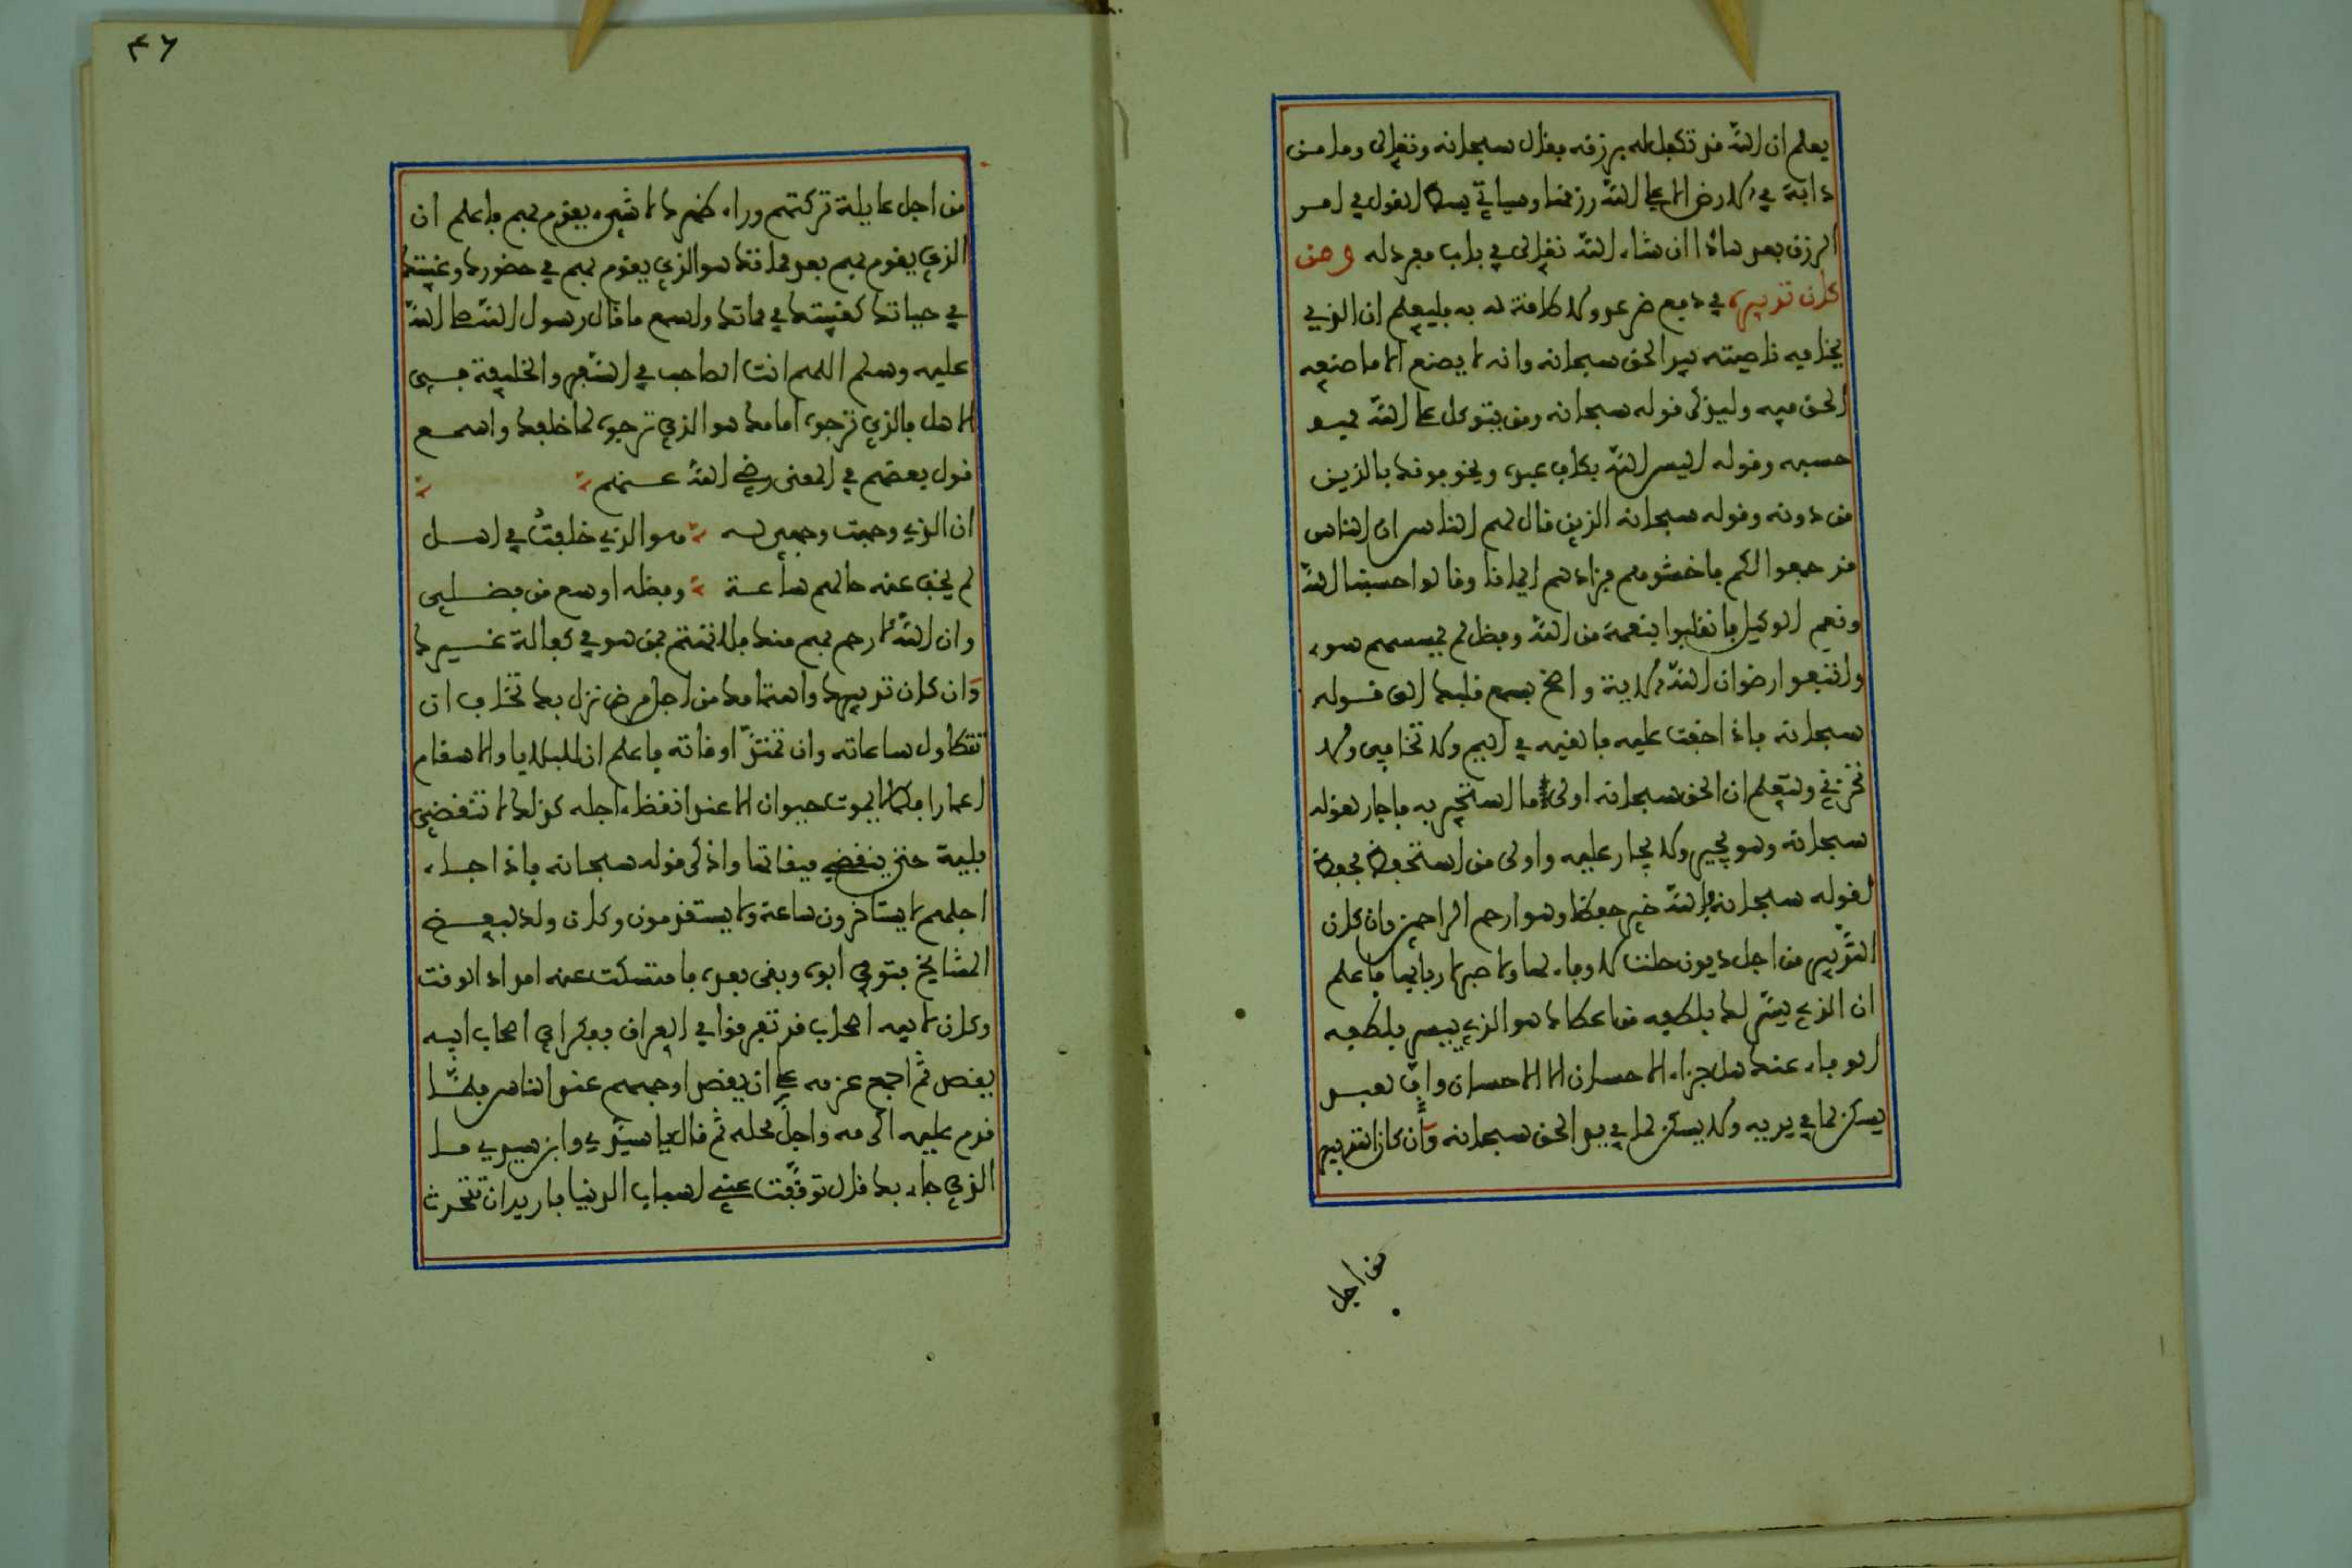 يعلم ان الله قد تكفل له برزقه فقال سبحانه وتعالى وما من
دابة في الارض الا على الله رزقها وسيأتي بسط القول في امر
الرزق بعد هاذا ان شاء الله تعالى في باب مفرد له ومن
كان تدبيره في دفع ضر عدو لا طاقة له به فليعلم ان الذي
يخافه ناصيته بيد الحق سبحانه وانه لا يصنع الا ما صنعه
الحق فيه وليذكر قوله سبحانه ومن يتوكل على الله فهو
حسبه وقوله اليس الله بكاف عبده ويخوفونك بالذين
من دونه وقوله سبحانه الذين قال لهم الناس ان الناس
قد جمعوا لكم فاخشوهم فزادهم ايمانا وقالوا حسبنا الله
ونعم الوكيل فانقلبوا بنعمة من الله وفضل لم يمسسهم سوء
واتبعوا رضوان الله الاية واصخ بسمع قلبك الى قوله
سبحانه فاذا خفت عليه فالقيه في اليم ولا تخافي ولا
تحزني ولتعلم ان الحق سبحانه اولى ما استجير به فاجار لقوله
سبحانه وهو يجير ولا يجار عليه واولى من استحفظ فحفظ
لقوله سبحانه فالله خير حفظا وهو ارحم الراحمين وان كان
التدبير من اجل ديون حلت لا وفاء لها ولا صبر لاربابها فاعلم
ان الذي يسر لك بلطفه من اعطاك هو الذي ييسر بلطفه
الوفاء عنك هل جزاء الاحسان الا الاحسان واف لعبد
يسكن لما في يديه ولا يسكن لما في يد الحق سبحانه وان كان التدبير
من اجل
٤٦
من اجل عايلة تركتهم وراء ظهرك لا شيء يقوم بهم فاعلم ان
الذي يقوم بهم بعد مماتك هو الذي يقوم بهم في حضورك وغيبتك
في حياتك كغيبتك في مماتك واسمع ما قال رسول الله صلى الله
عليه وسلم اللهم انت الصاحب في السفر والخليفة في
الاهل فالذي ترجوه امامك هو الذي ترجوه لما خلفك واسمع
قول بعضهم في المعنى رضي الله عنهم
ان الذي وجهت وجهي له هو الذي خلفت في اهل
لم يخف عنه حالهم ساعة وفضله اوسع من فضلي
وان الله ارحم بهم منك فلا تهتم بمن هو في كفالة غيرك
وان كان تدبيرك واهتمامك من اجل مرض نزل بك تخاف ان
تتطاول ساعاته وان تمتد اوقاته فاعلم ان للبلايا والاسقام
اعمارا فكما لا يموت حيوان الا عند انقضاء اجله كذلك لا تنقضي
بلية حتى ينقضي ميقاتها واذكر قوله سبحانه فاذا جاء
اجلهم لا يستأخرون ساعة ولا يستقدمون وكان ولد لبعض
المشايخ فتوفي ابوه وبقي بعده فامتسكت عنه امداد الوقت
وكان لابيه اصحاب قد تفرقوا في العراق ففكر اي اصحاب ابيه
يقصد ثم اجمع عزمه على ان يقصد اوجههم عند الناس فلما
قدم عليه اكرمه واجل محله ثم قال يا سيدي وابن سيدي ما
الذي جاء بك قال توقفت عني اسباب الدنيا فاريد ان تتحدث